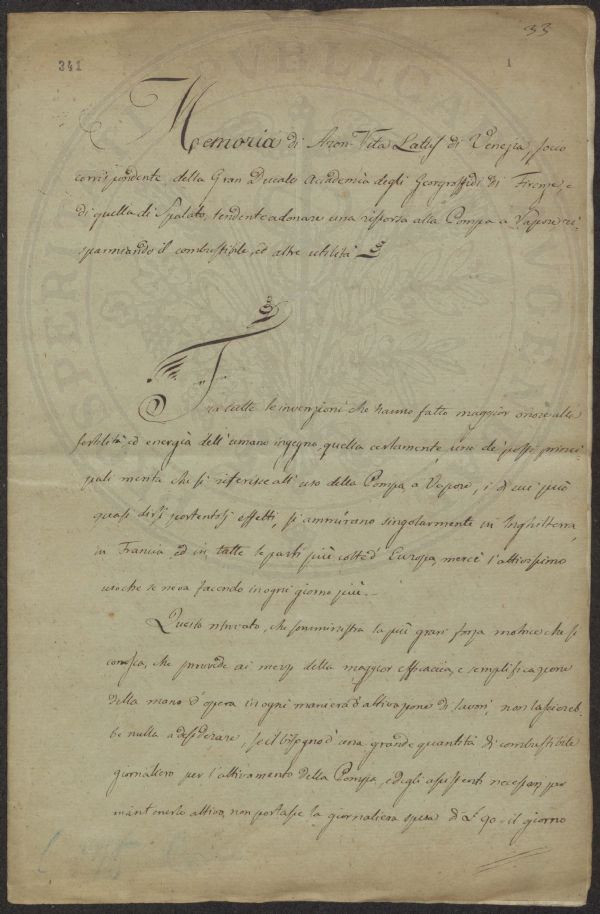 33
341
1
Memoria di Aron Vita Lattes di Venezia, socio
corrispondente della Gran Ducale Accademia degli Georgofili di Firenze, e
di quella di Spalato, tendente a donare una risorsa alla Pompa a Vapore ri-
sparmiando il combustibile, ed altre utilità
Fra tutte le invenzioni che hanno fatto maggior onore alla
fertilità, ed energia dell'umano ingegno, quella certamente uno de' posti princi-
pali merita che si riferisce all'uso della Pompa a Vapore, i di cui può
quasi dirsi portentosi effetti, si ammirano singolarmente in Inghilterra,
in Francia ed in tutte le parti più colte d'Europa, mercè l'attivissimo
uso che se ne va facendo in ogni giorno più.
Questo ritrovato, che somministra la più gran forza motrice che si
conosca, che provvede ai mezzi della maggior efficacia, e semplificazione
della mano d'opera in ogni maniera d'attivazione di lavori, non lascereb-
be nulla a desiderare, se il bisogno d'una grande quantità di combustibile
giornaliero per l'attivamento della Pompa, e degli assistenti necessarj per
mantenerla attiva, non portasse la giornaliera spesa di 90 il giorno